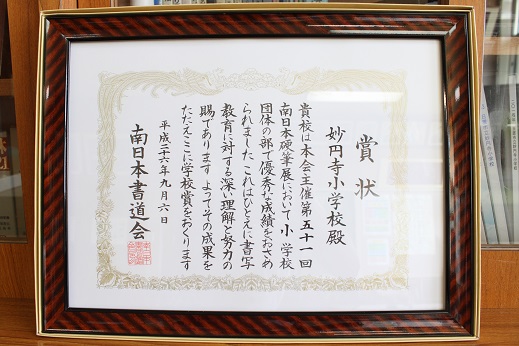 賞状
妙円寺小学校殿
貴校は本会主催第五十一回
南日本硬筆展において小学校
団体の部で優秀な成績をおさめ
られました これはひとえに書写
教育に対する深い理解と努力の
賜であります よってその成果を
たたえここに学校賞をおくります
平成二十六年九月六日
南日本書道会